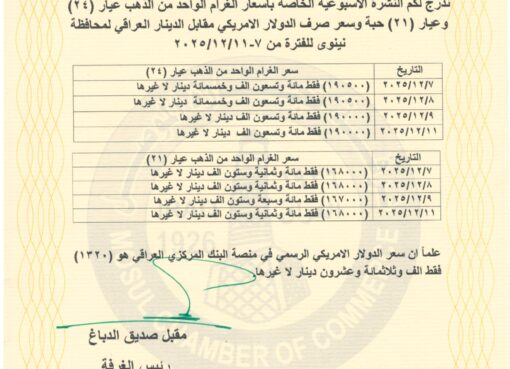 ندرج لكم النشرة الاسبوعية الخاصة بأسعار الغرام الواحد من الذهب عيار (٢٤)
وعيار (٢١) حبة وسعر صرف الدولار الامريكي مقابل الدينار العراقي لمحافظة
نينوى للفترة من ٧-٢٠٢٥/١٢/١١
التاريخ سعر الغرام الواحد من الذهب عيار (٢٤)
٢٠٢٥/١٢/٧ (١٩٠٥٠٠) فقط مائة وتسعون الف وخمسمائة دينار لا غيرها
٢٠٢٥/١٢/٨ (١٩٠٥٠٠) فقط مائة وتسعون الف وخمسمائة دينار لا غيرها
٢٠٢٥/١٢/٩ (١٩٠٠٠٠) فقط مائة وتسعون الف دينار لا غيرها
٢٠٢٥/١٢/١١ (١٩٠٠٠٠) فقط مائة وتسعون الف دينار لا غيرها
التاريخ سعر الغرام الواحد من الذهب عيار (٢١)
٢٠٢٥/١٢/٧ (١٦٨٠٠٠) فقط مائة وثمانية وستون الف دينار لا غيرها
٢٠٢٥/١٢/٨ (١٦٨٠٠٠) فقط مائة وثمانية وستون الف دينار لا غيرها
٢٠٢٥/١٢/٩ (١٦٧٠٠٠) فقط مائة وسبعة وستون الف دينار لا غيرها
٢٠٢٥/١٢/١١ (١٦٨٠٠٠) فقط مائة وثمانية وستون الف دينار لا غيرها
علماً ان سعر الدولار الامريكي الرسمي في منصة البنك المركزي العراقي هو (١٣٢٠)
فقط الف وثلاثمائة وعشرون دينار لا غيرها.
مقبل صديق الدباغ
رئيس الغرفة
1926
MOSUL CHAMBER OF COMMERCE